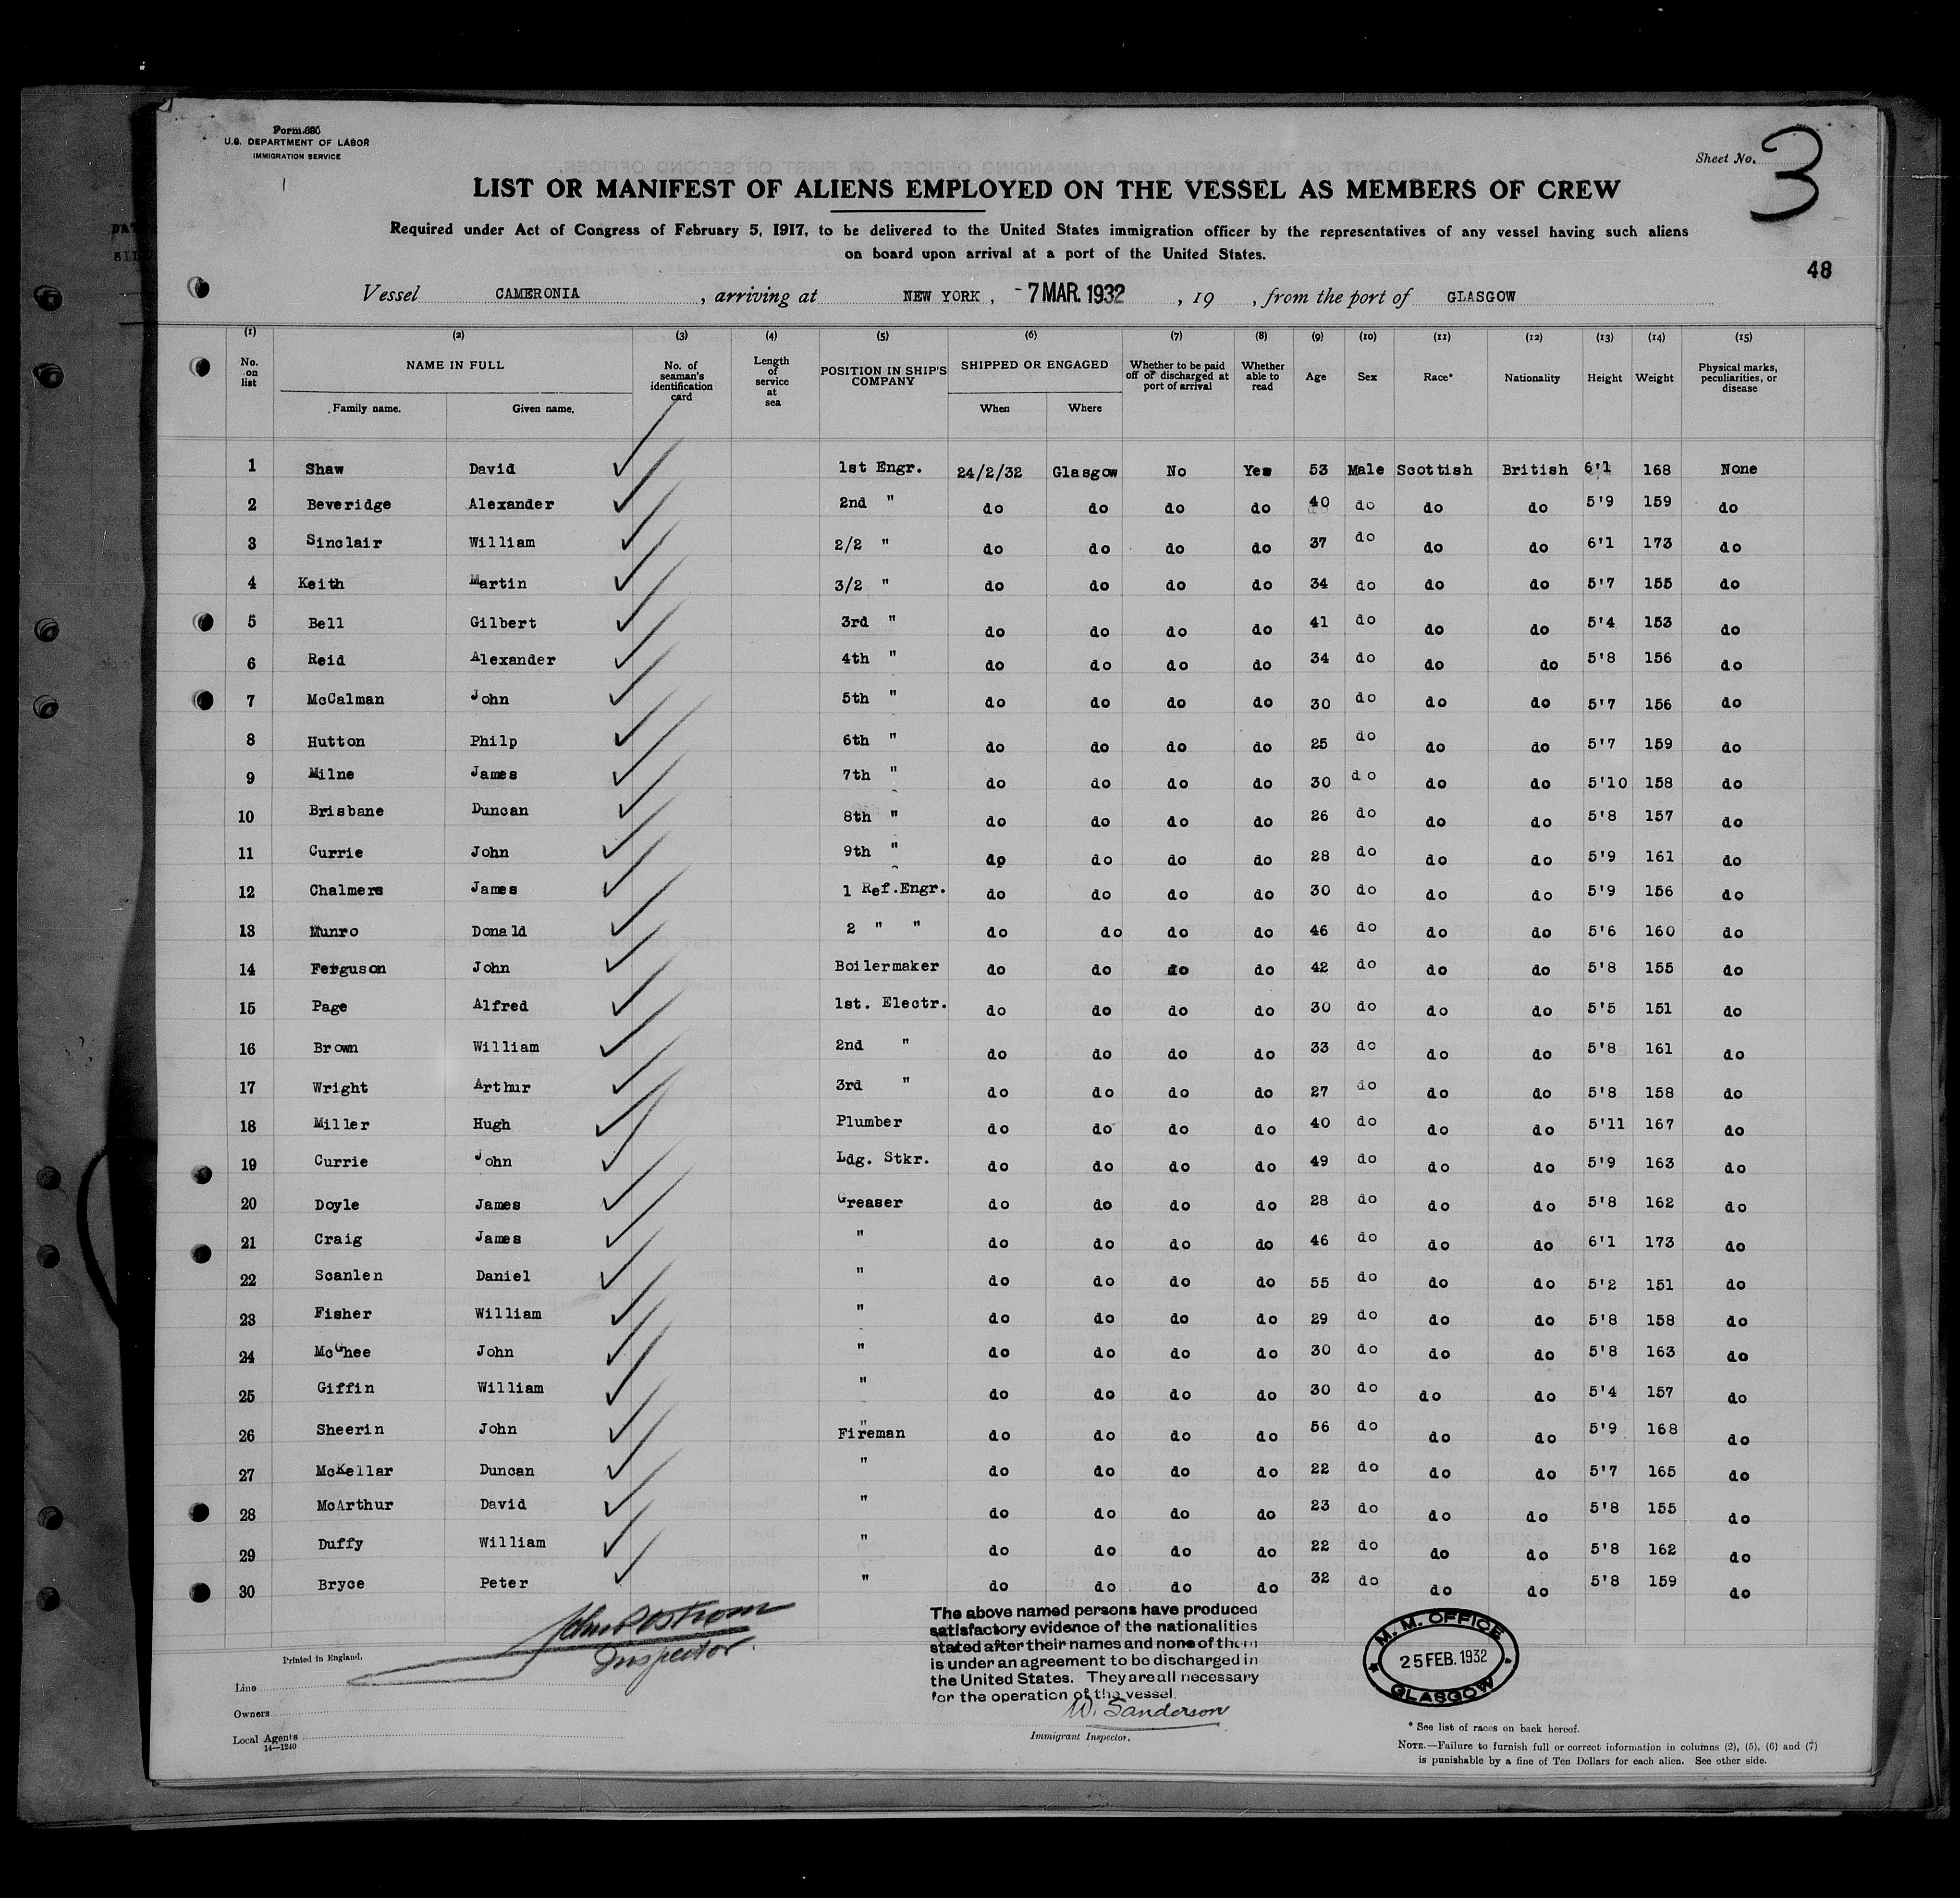 Form 680
U.S. DEPARTMENT OF LABOR
IMMIGRATION SERVICE
Sheet No. 3
LIST OR MANIFEST OF ALIENS EMPLOYED ON THE VESSEL AS MEMBERS OF CREW
Required under Act of Congress of February 5, 1917, to be delivered to the United States immigration officer by the representatives of any vessel having such aliens
on board upon arrival at a port of the United States.
48
Vessel CAMERONIA , arriving at NEW YORK , -7 MAR. 1932 , 19 , from the port of GLASGOW
(1) (2) (3) (4) (5) (6) (7) (8) (9) (10) (11) (12) (13) (14) (15)
No. on list NAME IN FULL Family name. Given name. No. of seaman's identification card Length of service at sea POSITION IN SHIP'S COMPANY SHIPPED OR ENGAGED When Where Whether to be paid off or discharged at port of arrival Whether able to read Age Sex Race* Nationality Height Weight Physical marks, peculiarities, or disease
1 Shaw David 1st Engr. 24/2/32 Glasgow No Yes 53 Male Scottish British 6'1 168 None
2 Beveridge Alexander 2nd " do do do do 40 do do do 5'9 159 do
3 Sinclair William 2/2 " do do do do 37 do do do 6'1 173 do
4 Keith Martin 3/2 " do do do do 34 do do do 5'7 155 do
5 Bell Gilbert 3rd " do do do do 41 do do do 5'4 153 do
6 Reid Alexander 4th " do do do do 34 do do do 5'8 156 do
7 McCalman John 5th " do do do do 30 do do do 5'7 156 do
8 Hutton Philp 6th " do do do do 25 do do do 5'7 159 do
9 Milne James 7th " do do do do 30 do do do 5'10 158 do
10 Brisbane Duncan 8th " do do do do 26 do do do 5'8 157 do
11 Currie John 9th " do do do do 28 do do do 5'9 161 do
12 Chalmers James 1 Ref.Engr. do do do do 30 do do do 5'9 156 do
13 Munro Donald 2 " " do do do do 46 do do do 5'6 160 do
14 Ferguson John Boilermaker do do do do 42 do do do 5'8 155 do
15 Page Alfred 1st. Electr. do do do do 30 do do do 5'5 151 do
16 Brown William 2nd " do do do do 33 do do do 5'8 161 do
17 Wright Arthur 3rd " do do do do 27 do do do 5'8 158 do
18 Miller Hugh Plumber do do do do 40 do do do 5'11 167 do
19 Currie John Ldg. Stkr. do do do do 49 do do do 5'9 163 do
20 Doyle James Greaser do do do do 28 do do do 5'8 162 do
21 Craig James " do do do do 46 do do do 6'1 173 do
22 Scanlen Daniel " do do do do 55 do do do 5'2 151 do
23 Fisher William " do do do do 29 do do do 5'8 158 do
24 McGhee John " do do do do 30 do do do 5'8 163 do
25 Giffin William " do do do do 30 do do do 5'4 157 do
26 Sheerin John " Fireman do do do do 56 do do do 5'9 168 do
27 McKellar Duncan " do do do do 22 do do do 5'7 165 do
28 McArthur David " do do do do 23 do do do 5'8 155 do
29 Duffy William " do do do do 22 do do do 5'8 162 do
30 Bryce Peter " do do do do 32 do do do 5'8 159 do
Inspector
The above named persons have produced
satisfactory evidence of the nationalities
stated after their names and none of them
is under an agreement to be discharged in
the United States. They are all necessary
for the operation of the vessel.
W. Sanderson
Immigrant Inspector.
M. M. OFFICE
25 FEB. 1932
GLASGOW
Printed in England.
Line
Owners
Local Agents
14—1240
* See list of races on back hereof.
NOTE.—Failure to furnish full or correct information in columns (2), (5), (6) and (7)
is punishable by a fine of Ten Dollars for each alien. See other side.